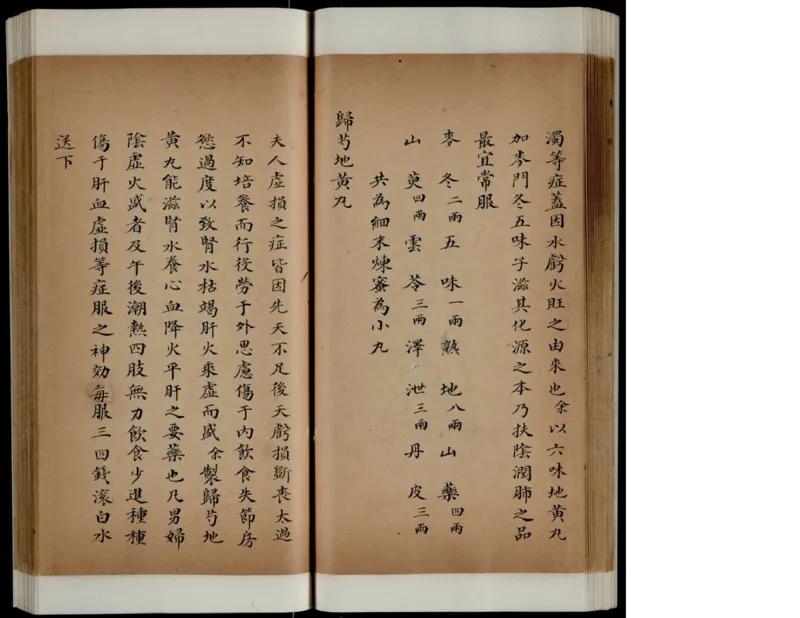 濁等症蓋因水虧火旺之由來也余以六味地黃丸
加麥門冬五味子滋其化源之本乃扶陰潤肺之品
最宜常服
麥冬二兩五味一兩熟地八兩山藥四兩
山萸四兩雲苓三兩澤泄三兩丹皮三兩
共為細末煉蜜為小丸
歸芍地黃丸
夫人虛損之症皆因先天不足後天虧損斵丧太過
不知培養而行役勞于外思慮傷于內飲食失節房
慾過度以致腎水枯竭肝火乘虛而盛余製歸芍地
黃丸能滋腎水養心血降火平肝之要藥也凡男婦
陰虛火盛者及午後潮熱四肢無力飲食少進種種
傷于肝血虛損等症服之神効每服三四錢滾白水
送下